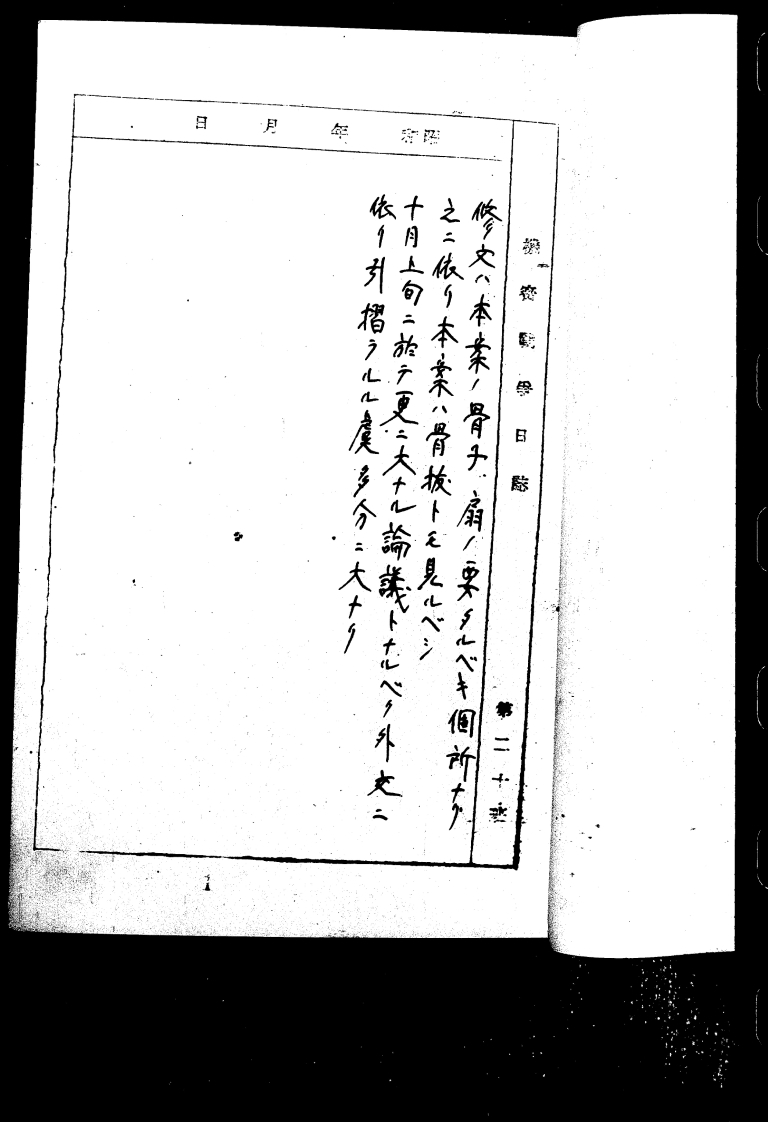 機密戰爭日誌
第二十
昭和 年 月 日
修文ハ本案ノ骨子、扇ノ要タルベキ個所ナリ
之ニ依リ本案ハ骨抜トモ見ルベシ
十月上旬ニ於テ更ニ大ナル論議トナルベク外交ニ
依リ引摺ラルル虞多分ニ大ナリ
1